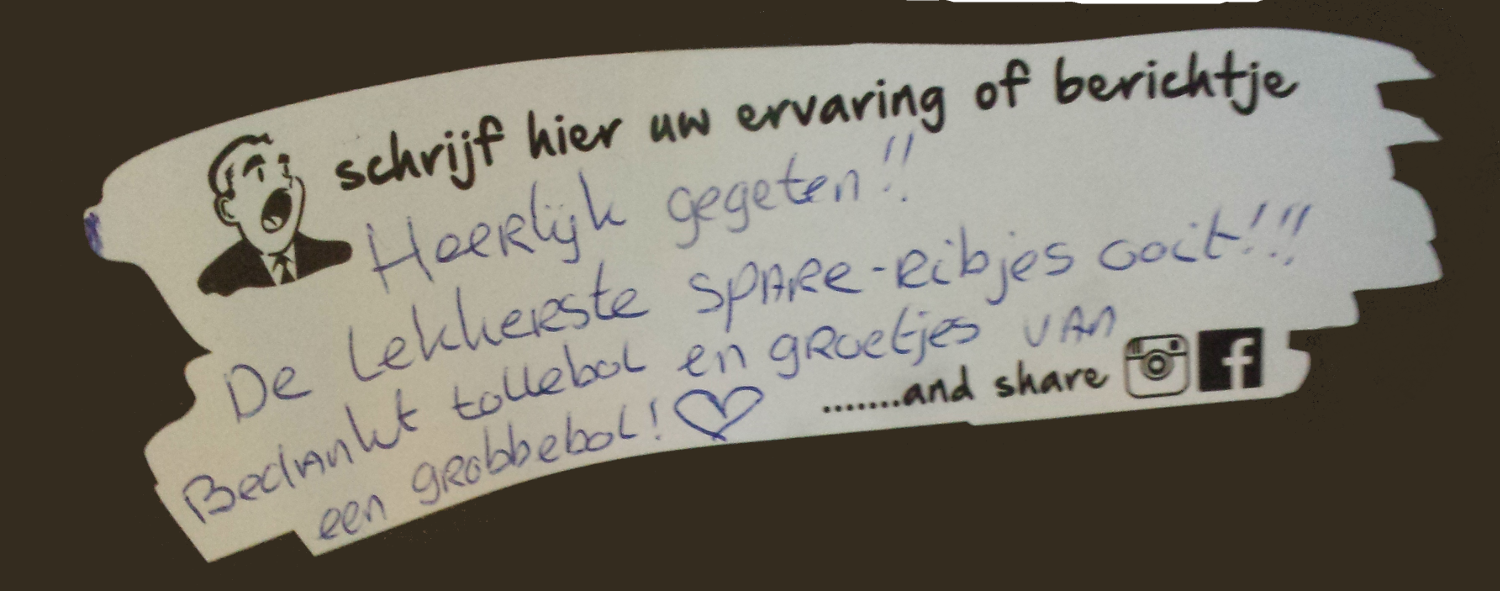 schrijf hier uw ervaring of berichtje
Heerlijk gegeten!!
De lekkerste spare-ribjes ooit!!!
Bedankt tollebol en groetjes van
een grobbebol! ♡
.......and share